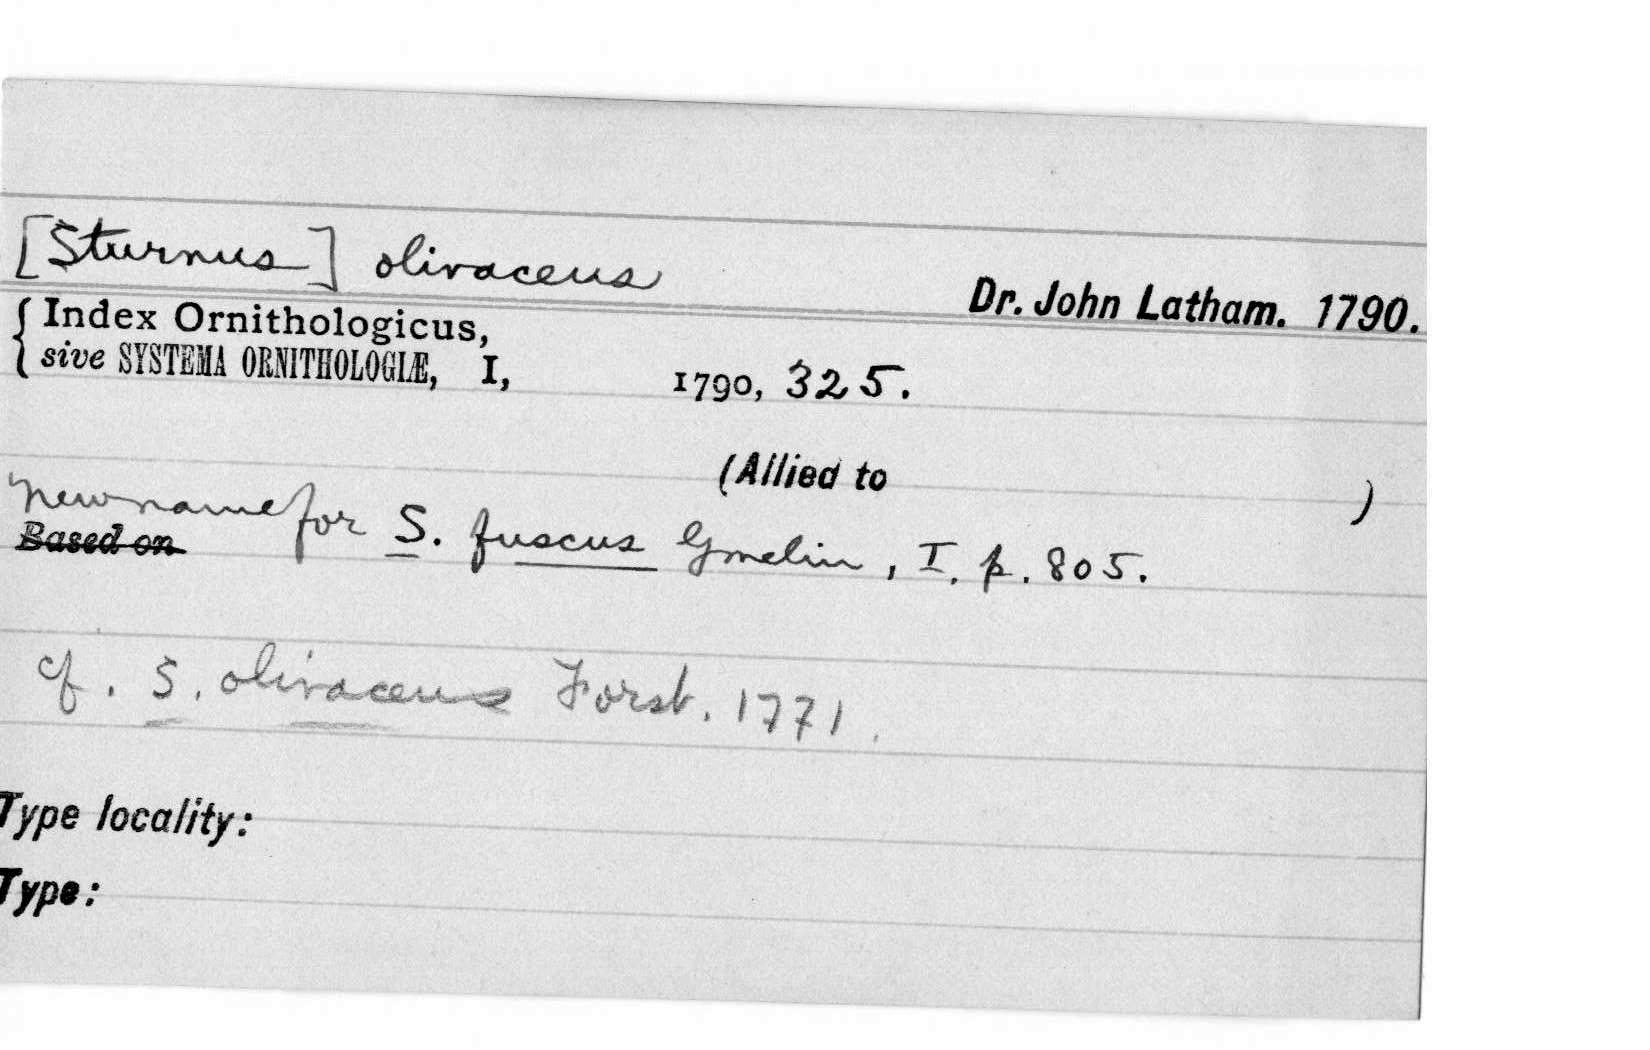 [Sturnus] olivaceus
Dr. John Latham. 1790.
{ Index Ornithologicus,
sive SYSTEMA ORNITHOLOGIÆ, I, 1790, 325.
(Allied to )
New name for S. fuscus Gmelin, I. p. 805.
Based on
cf. S. olivaceus Forst. 1771.
Type locality:
Type: